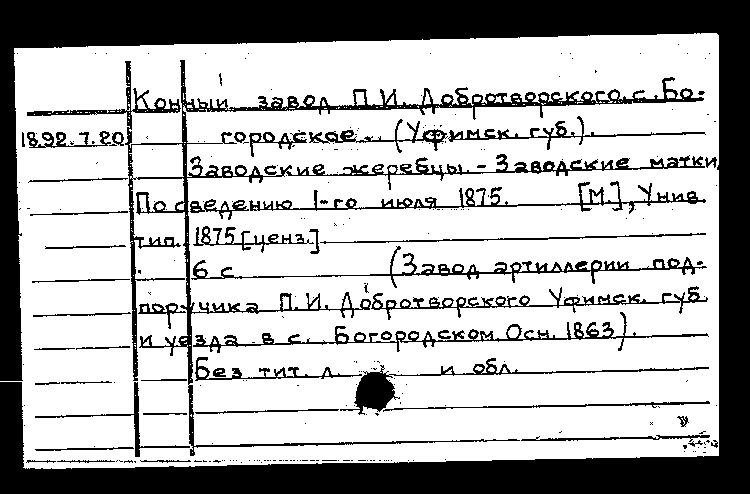 Конный завод П.И. Добротворского, с. Бо-
18.92.7.20 городское.. (Уфимск. губ.).
Заводские жеребцы. - Заводские матки
По сведению 1-го июля 1875. [М.], Унив.
тип. 1875 [ценз.].
6 с. (Завод артиллерии под-
поручика П.И. Добротворского Уфимск. губ.
и уезда в с. Богородском. Осн. 1863).
Без тит. л. и обл.